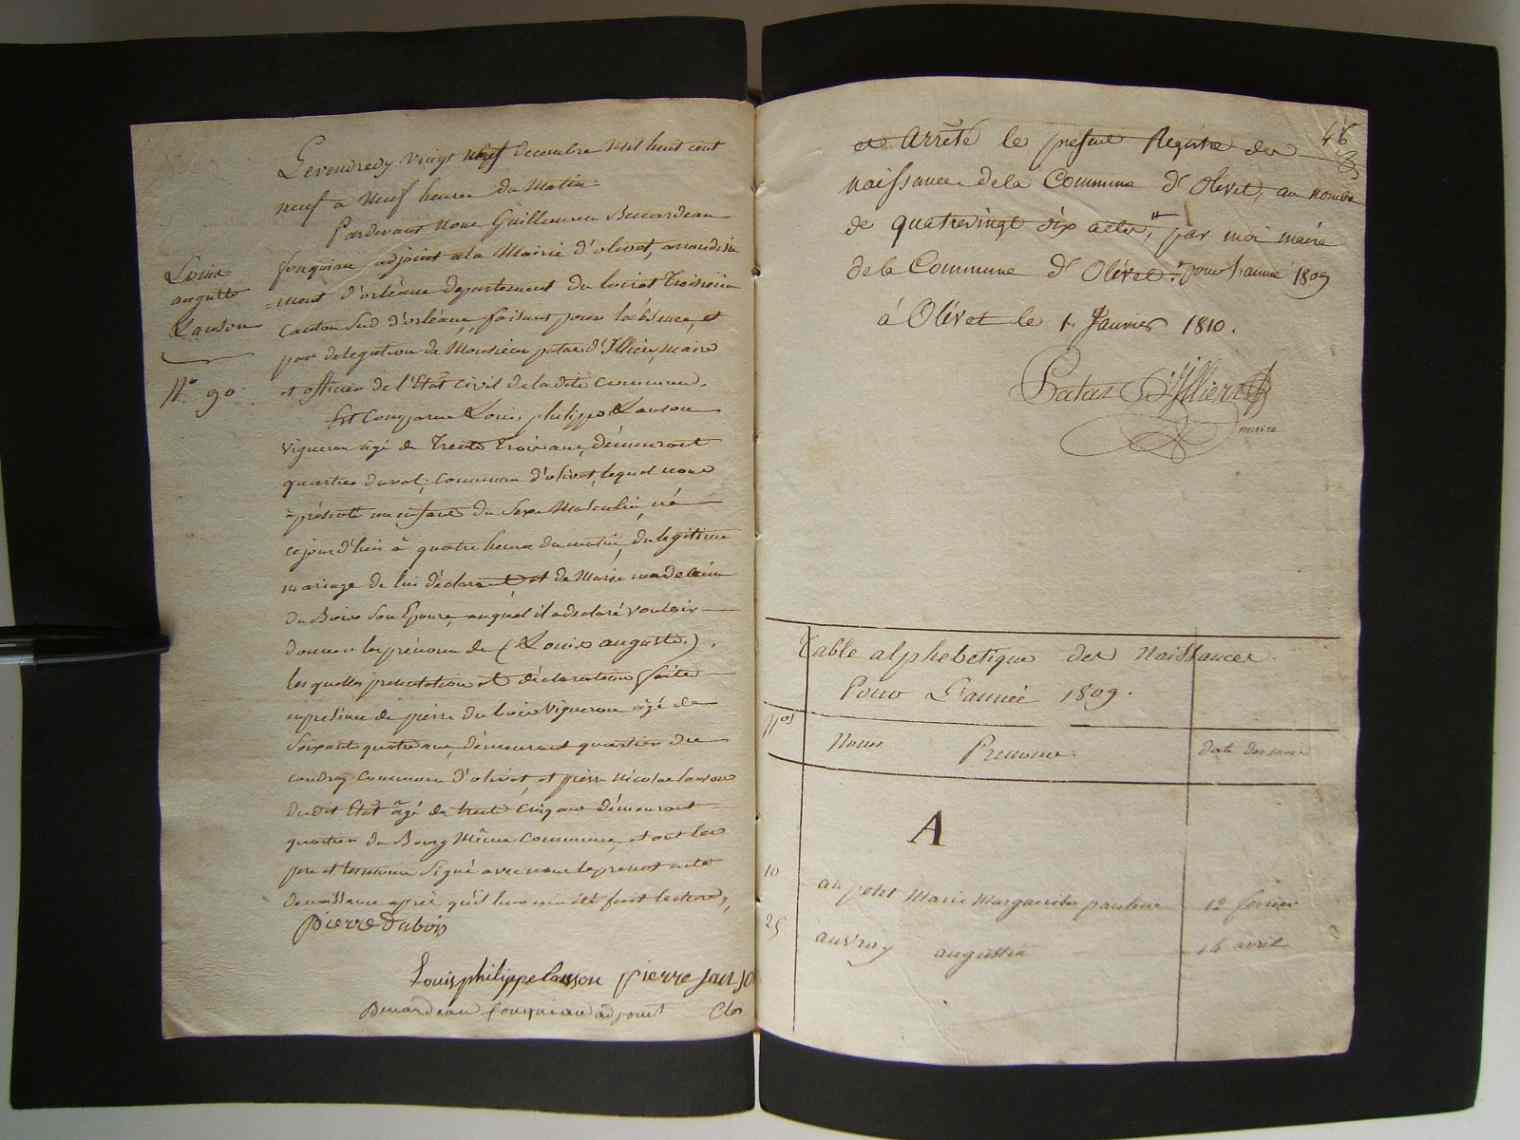 Le vendredy vingt neuf decembre mil huit cent
neuf a neuf heures du Matin
Pardevant nous Guillaume Benardeau
fouquiau adjoint a la Mairie d'olivet, arrondisse
-ment d'orléans departement du loiret troisieme
Canton Sud d'orléans, faisant pour l'absence, et
par delegation de Monsieur patas d'Illiers, maire
et officier de l'Etat Civil de la dite commune.
Est Comparu Louis philippe Lanson
vigneron agé de trente trois ans, démeurant
quartier du val, commune d'olivet, lequel nous
a présenté un enfant du Sexe Masculin, né
cejourd'hui à quatre heures du matin, du legitime
mariage de lui déclarant et de Marie madelaine
du Bois Son Epouse, auquel il a declaré vouloir
donner les prénoms de (Louis auguste).
les quelles presentation et déclaration faite
en presence de pierre du bois vigneron agé de
Soixante quatre ans, démeurant quartier du
coudray commune d'olivet, et pierre nicolas lanson
du dit Etat agé de trente cinq ans démeurant
quartier du Bourg Même Commune, et ont les
pere et temoins Signé avec nous le present acte
de naissance après qu'il leur en a été fait lecture,
pierre Dubois
Louis philippe lanson pierre lanson
Benardeau fouquiau adjoint
Clos
Louis
auguste
Lanson
N.° 90
46
et Arrêté le present Registre des
naissances de la Commune d'Olivet, au nombre
de quatrevingt dix actes, par moi maire
de la Commune d'Olivet. pour l'année 1809
à Olivet le 1.er Janvier 1810.
Patas D'Illiers
maire
Table alphebetique des Naissances
Pour L'année 1809.
N.os
Noms Prenoms
date des
A
10 aupetit Marie Margueritte pauline 12 fevrier
25 auvray augustin 16 avril